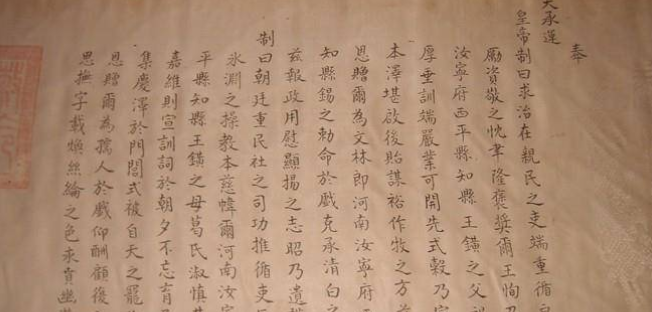 奉
天承運
皇帝制曰求治在親民之吏端重循
勵資敬之忱聿隆褒獎爾王恂乃
汝寧府西平縣知縣王錤之父
厚垂訓端嚴業可開先式榖乃
本澤堪啟後貽謀裕作牧之方
恩贈爾為文林郎河南汝寧府
知縣錫之勅命於戲克承清白之
茲報政用慰顯揚之志昭乃遺
制曰朝廷重民社之司功推循吏
氷淵之操教本慈幃爾河南汝
平縣知縣王錤之母葛氏淑慎
嘉維則宣訓詞於朝夕不忘育
集慶澤於門閭式被自天之寵
恩贈爾為孺人於戲仰酬顧復
思撫字載煥絲綸之色永賁幽